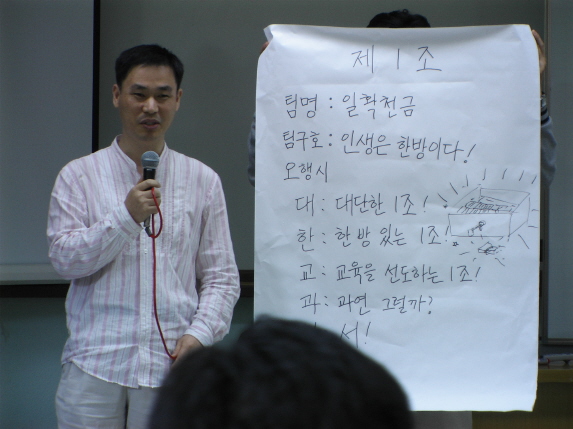 제 1 조
팀명 : 일확천금
팀구호 : 인생은 한방이다!
오행시
대 : 대단한 1조!
한 : 한방 있는 1조!
교 : 교육을 선도하는 1조!
과 : 과연 그럴까?
서!